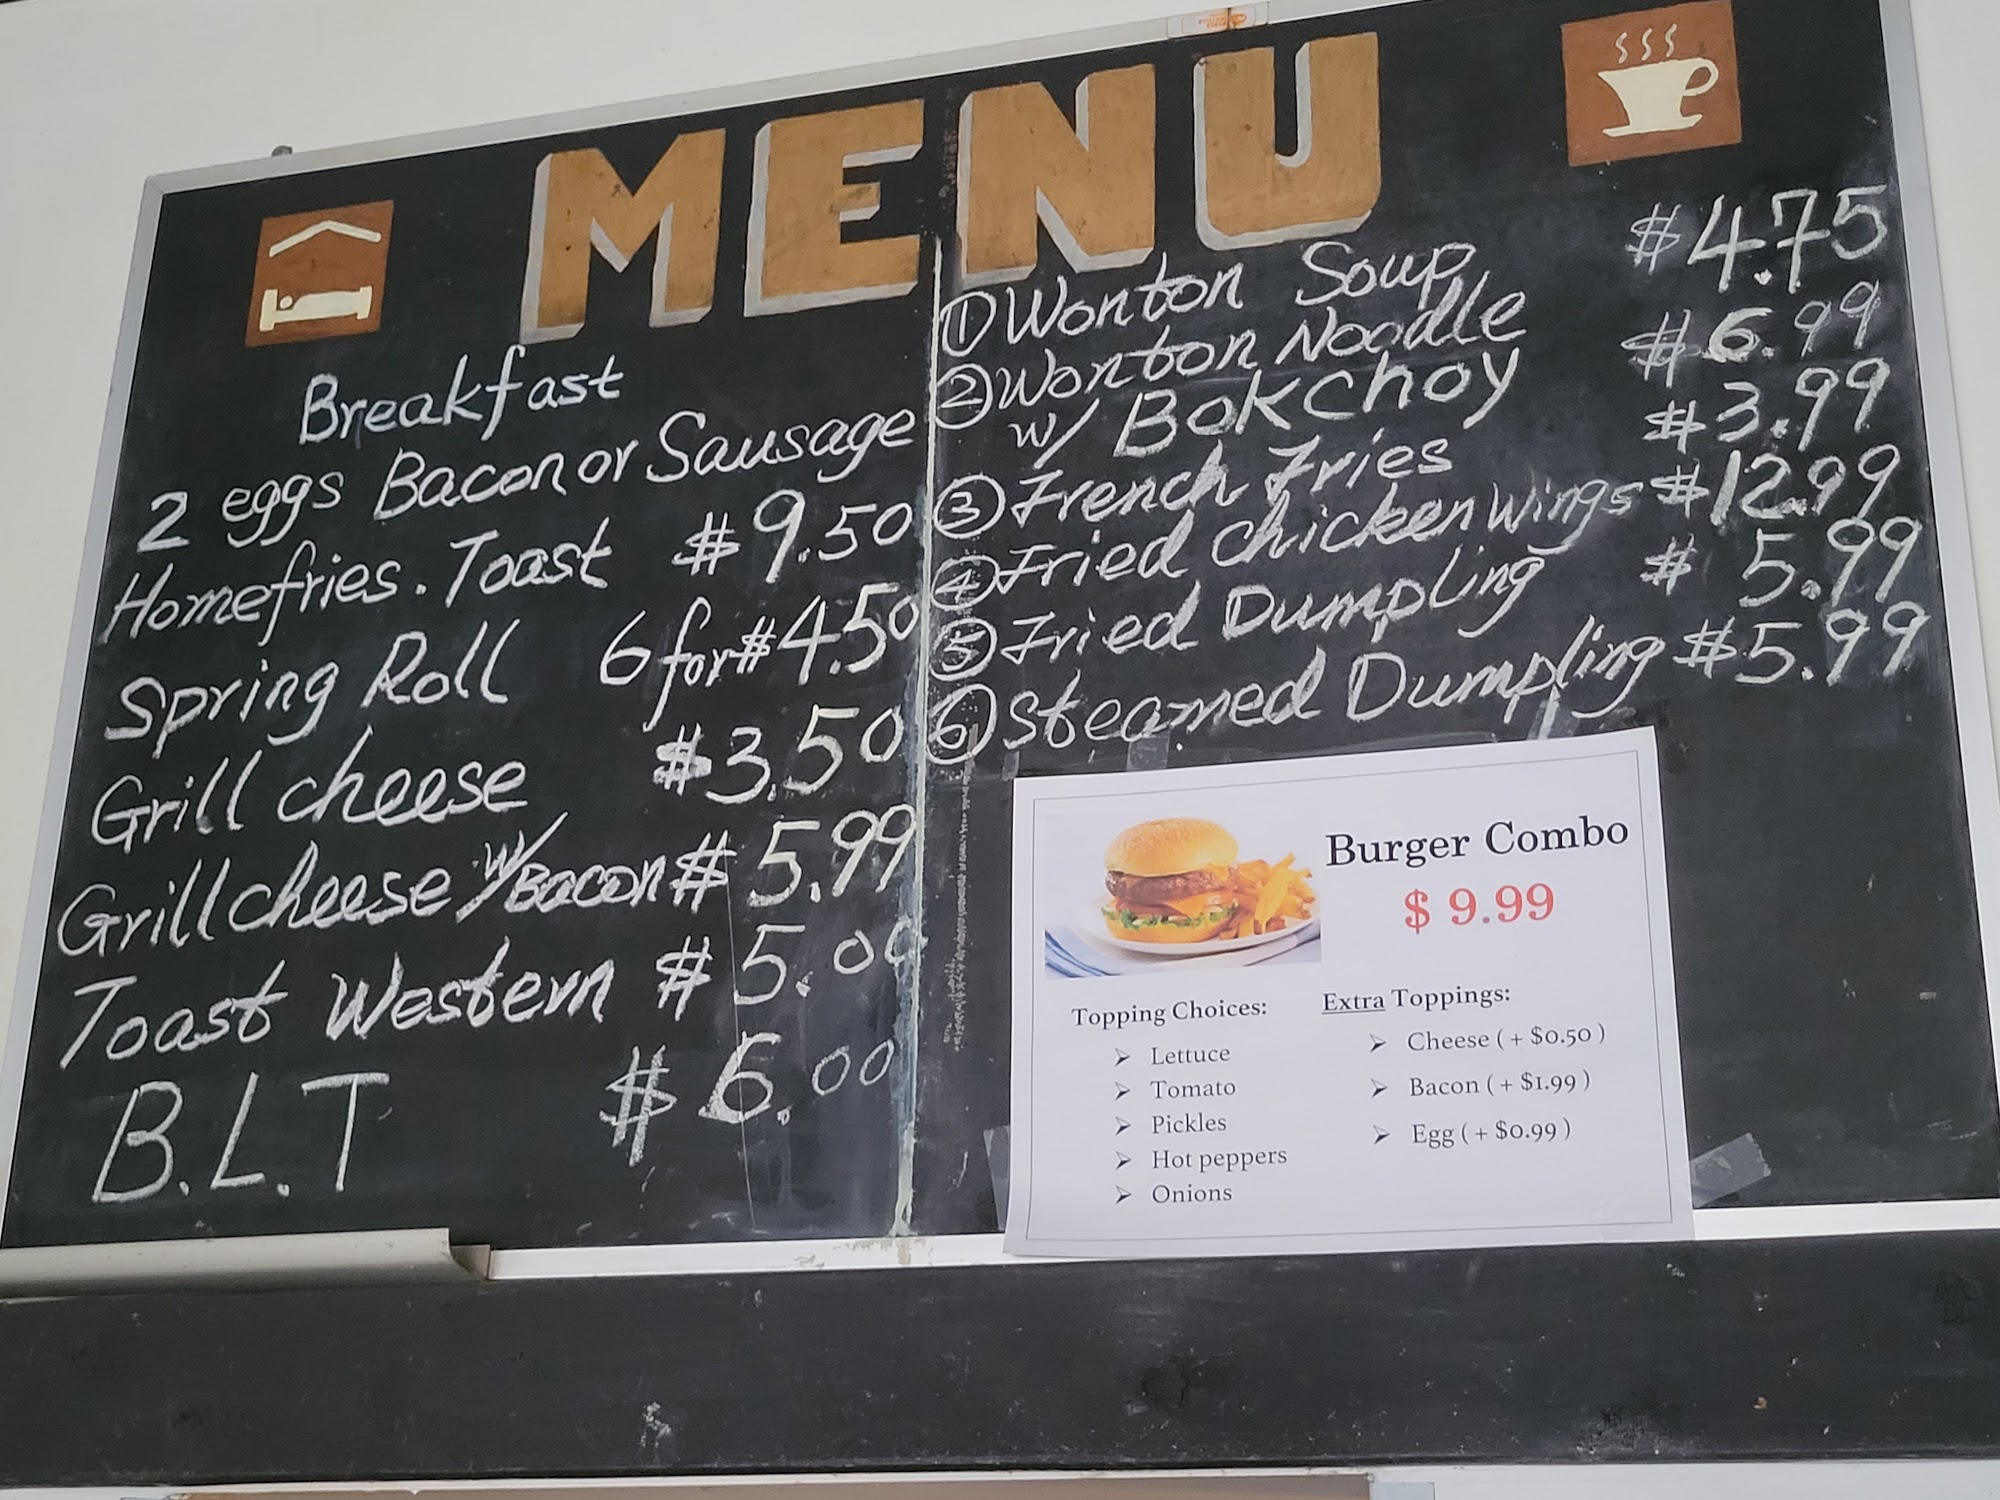 MENU
Breakfast
2 eggs Bacon or Sausage
Homefries. Toast $9.50
Spring Roll 6 for $4.50
Grill cheese $3.50
Grill cheese w/ Bacon $5.99
Toast Western $5.00
B.L.T $6.00
① Wonton Soup $4.75
② Wonton Noodle $6.99
w/ BOKChoy
③ French Fries $3.99
④ Fried chicken wings $12.99
⑤ Fried Dumpling $5.99
⑥ Steamed Dumpling $5.99
Burger Combo
$ 9.99
Topping Choices:
➢ Lettuce
➢ Tomato
➢ Pickles
➢ Hot peppers
➢ Onions
Extra Toppings:
➢ Cheese ( + $0.50 )
➢ Bacon ( + $1.99 )
➢ Egg ( + $0.99 )